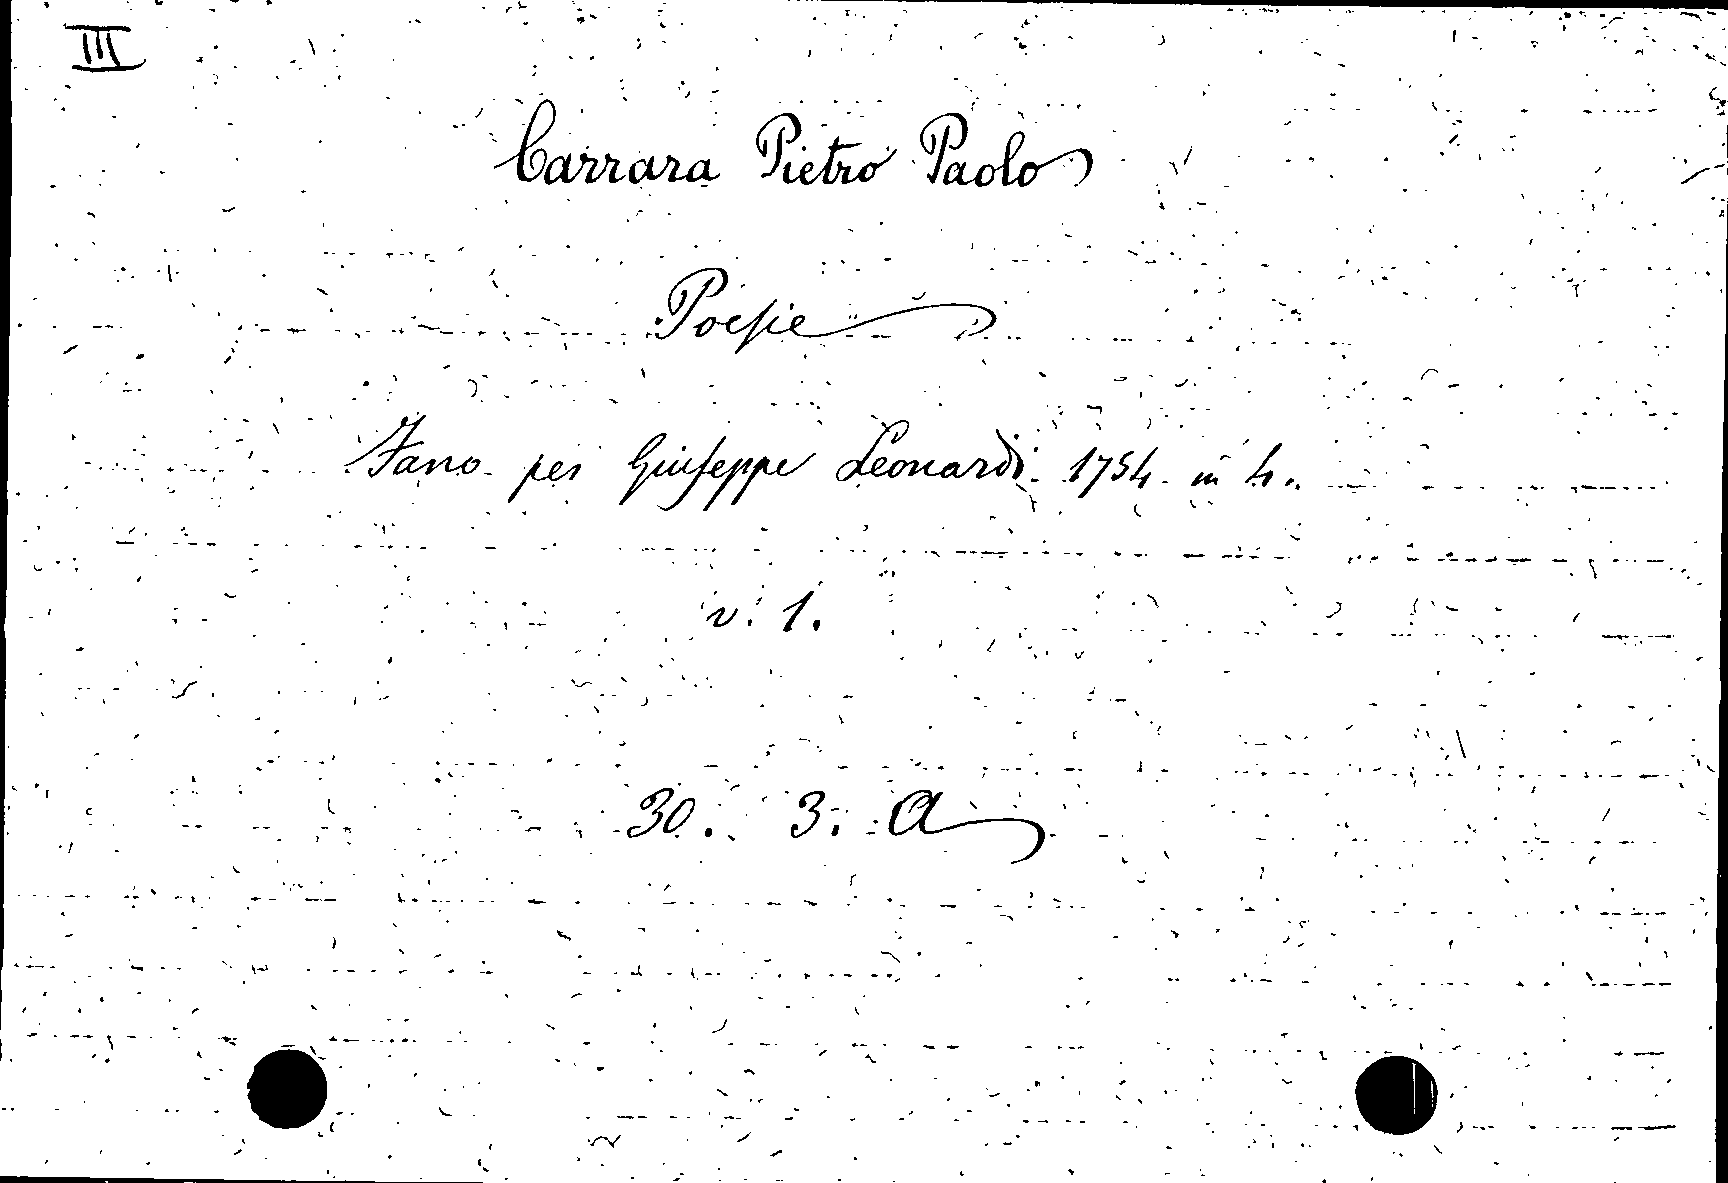 III
Carrara Pietro Paolo
Poesie
Fano per Giuseppe Leonardi 1754 in 4.
v. 1.
30. 3. A